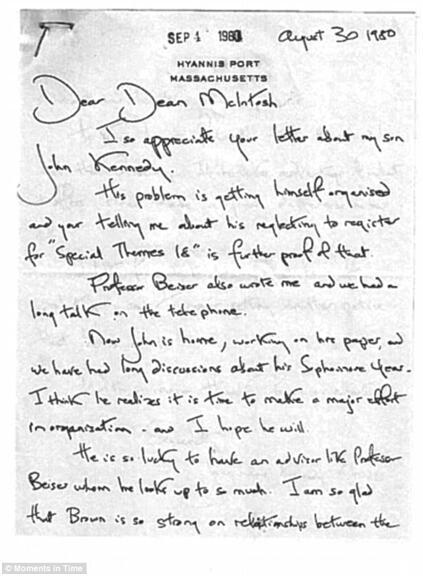 SEP 4 1980 August 30 1980
HYANNIS PORT
MASSACHUSETTS
Dear Dean McIntosh
I so appreciate your letter about my son
John Kennedy.
His problem is getting himself organised
and your telling me about his neglecting to register
for "Special Themes 18" is further proof of that.
Professor Beiser also wrote me and we had a
long talk on the telephone.
Now John is home, working on his paper, and
we have had long discussions about his Sophomore Year.
I think he realizes it is time to make a major effort
in organization - and I hope he will.
He is so lucky to have an advisor like Professor
Beiser whom he looks up to so much. I am so glad
that Brown is so strong on relationships between the
© Moments in Time